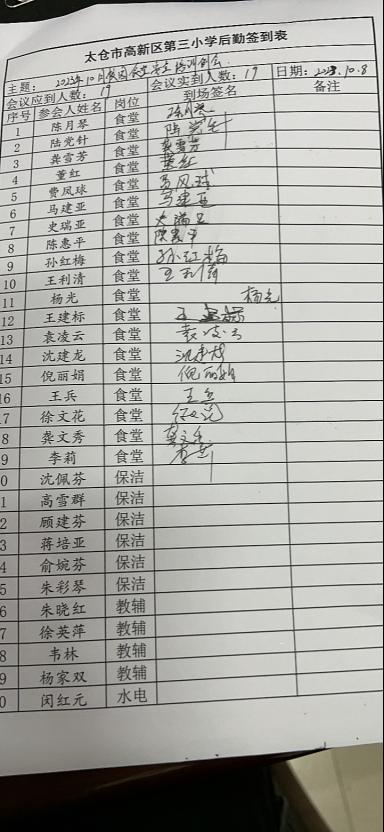 太仓市高新区第三小学后勤签到表
主题： 2023年10月校园食堂安全培训例会
会议应到人数： 19 会议实到人数： 19 日期： 2023.10.8
序号 参会人姓名 岗位 到场签名 备注
1 陈月琴 食堂 陈月琴
2 陆党针 食堂 陆党针
3 龚雪芳 食堂 龚雪芳
4 董红 食堂 董红
5 费凤球 食堂 费凤球
6 马建亚 食堂 马建亚
7 史瑞亚 食堂 史瑞亚
8 陈惠平 食堂 陈惠平
9 孙红梅 食堂 孙红梅
10 王利清 食堂 王利清
11 杨光 食堂 杨光
12 王建标 食堂
13 袁凌云 食堂 袁凌云
14 沈建龙 食堂 沈建龙
15 倪丽娟 食堂 倪丽娟
6 王兵 食堂 王兵
7 徐文花 食堂 徐文花
8 龚文秀 食堂 龚文秀
9 李莉 食堂 李莉
0 沈佩芬 保洁
1 高雪群 保洁
2 顾建芬 保洁
3 蒋培亚 保洁
4 俞婉芬 保洁
5 朱彩琴 保洁
6 朱晓红 教辅
7 徐英萍 教辅
8 韦林 教辅
9 杨家双 教辅
0 闵红元 水电